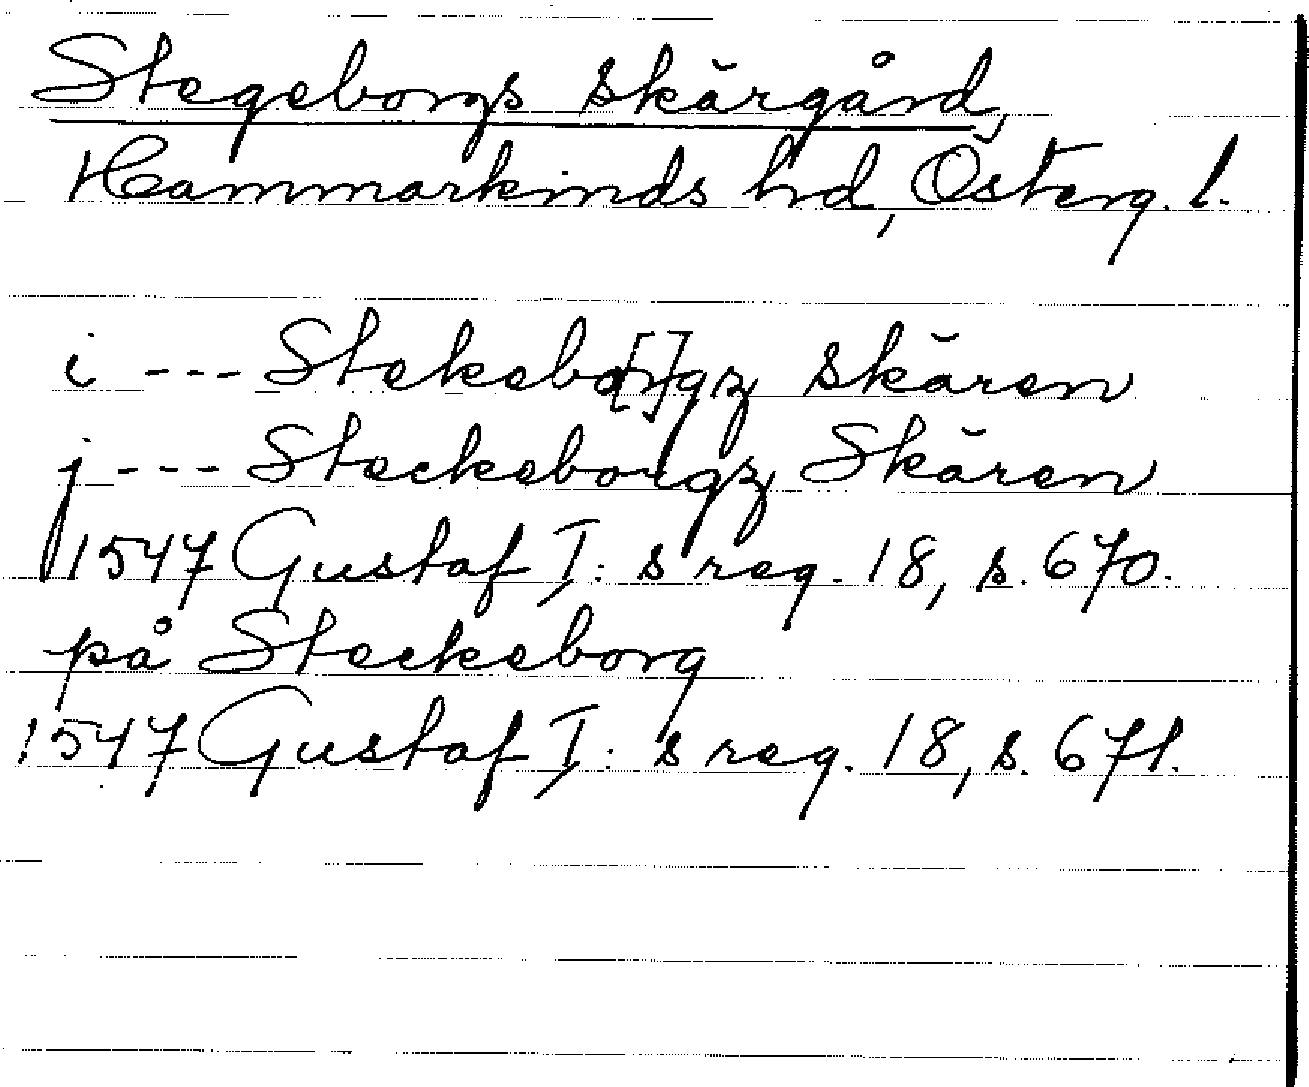 Stegeborgs skärgård,
Hammarkinds hd, Österg. l.
i --- Stekebo[r]gz skären
j --- Steckeborgz Skären
1547 Gustaf I: s reg. 18, s. 670.
på Steckeborg
1547 Gustaf I: s reg. 18, s. 671.